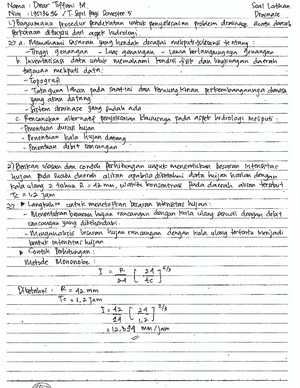 Nama : Dinar Tiffani M Soal Latihan
Nim : / T. Sipil Pagi Semester 5 Drainase
1) Bagaimana prosedur pendekatan untuk penyelesaian problem drainase suatu daerah
perkotaan ditinjau dari aspek hidrologi
a. Memahami sasaran yang hendak dicapai meliputi toleransi tentang :
- Tinggi genangan - Luas genangan - Lama berlangsungnya genangan
b. Inventarisasi data untuk memahami kondisi fisik dan lingkungan daerah
tinjauan meliputi data:
- Topografi
- Tata guna lahan pada saat ini dan kemungkinan perkembangannya dimasa
yang akan datang
- Sistem drainase yang sudah ada
c. Rencanakan alternatif penyelesaian khususnya pada aspek hidrologi meliputi
- Penentuan durasi hujan
- Penentuan kala hujan datang
- Penentuan debit rancangan
2) Berikan ulasan dan contoh perhitungan untuk menentukan besaran intensitas
hujan pada suatu daerah aliran apabila diketahui data hujan harian dengan
kala ulang 2 tahun R = 42 mm, waktu konsentrasi pada daerah aliran tersebut
Tc = 1,2 jam
• Langkah² untuk menetapkan besaran intensitas hujan :
- Menentukan besaran hujan rancangan dengan kala ulang sesuai dengan debit
rancangan yang dikehendaki.
- Menganalisis besaran hujan rancangan dengan kala ulang tertentu menjadi
bentuk intensitas hujan
• Contoh Perhitungan :
Metode Mononobe :
I = R/24 [24/tc]^2/3
Diketahui : R = 42 mm
Tc = 1,2 jam
I = 42/24 [24/1,2]^2/3
= 12,894 mm/jam